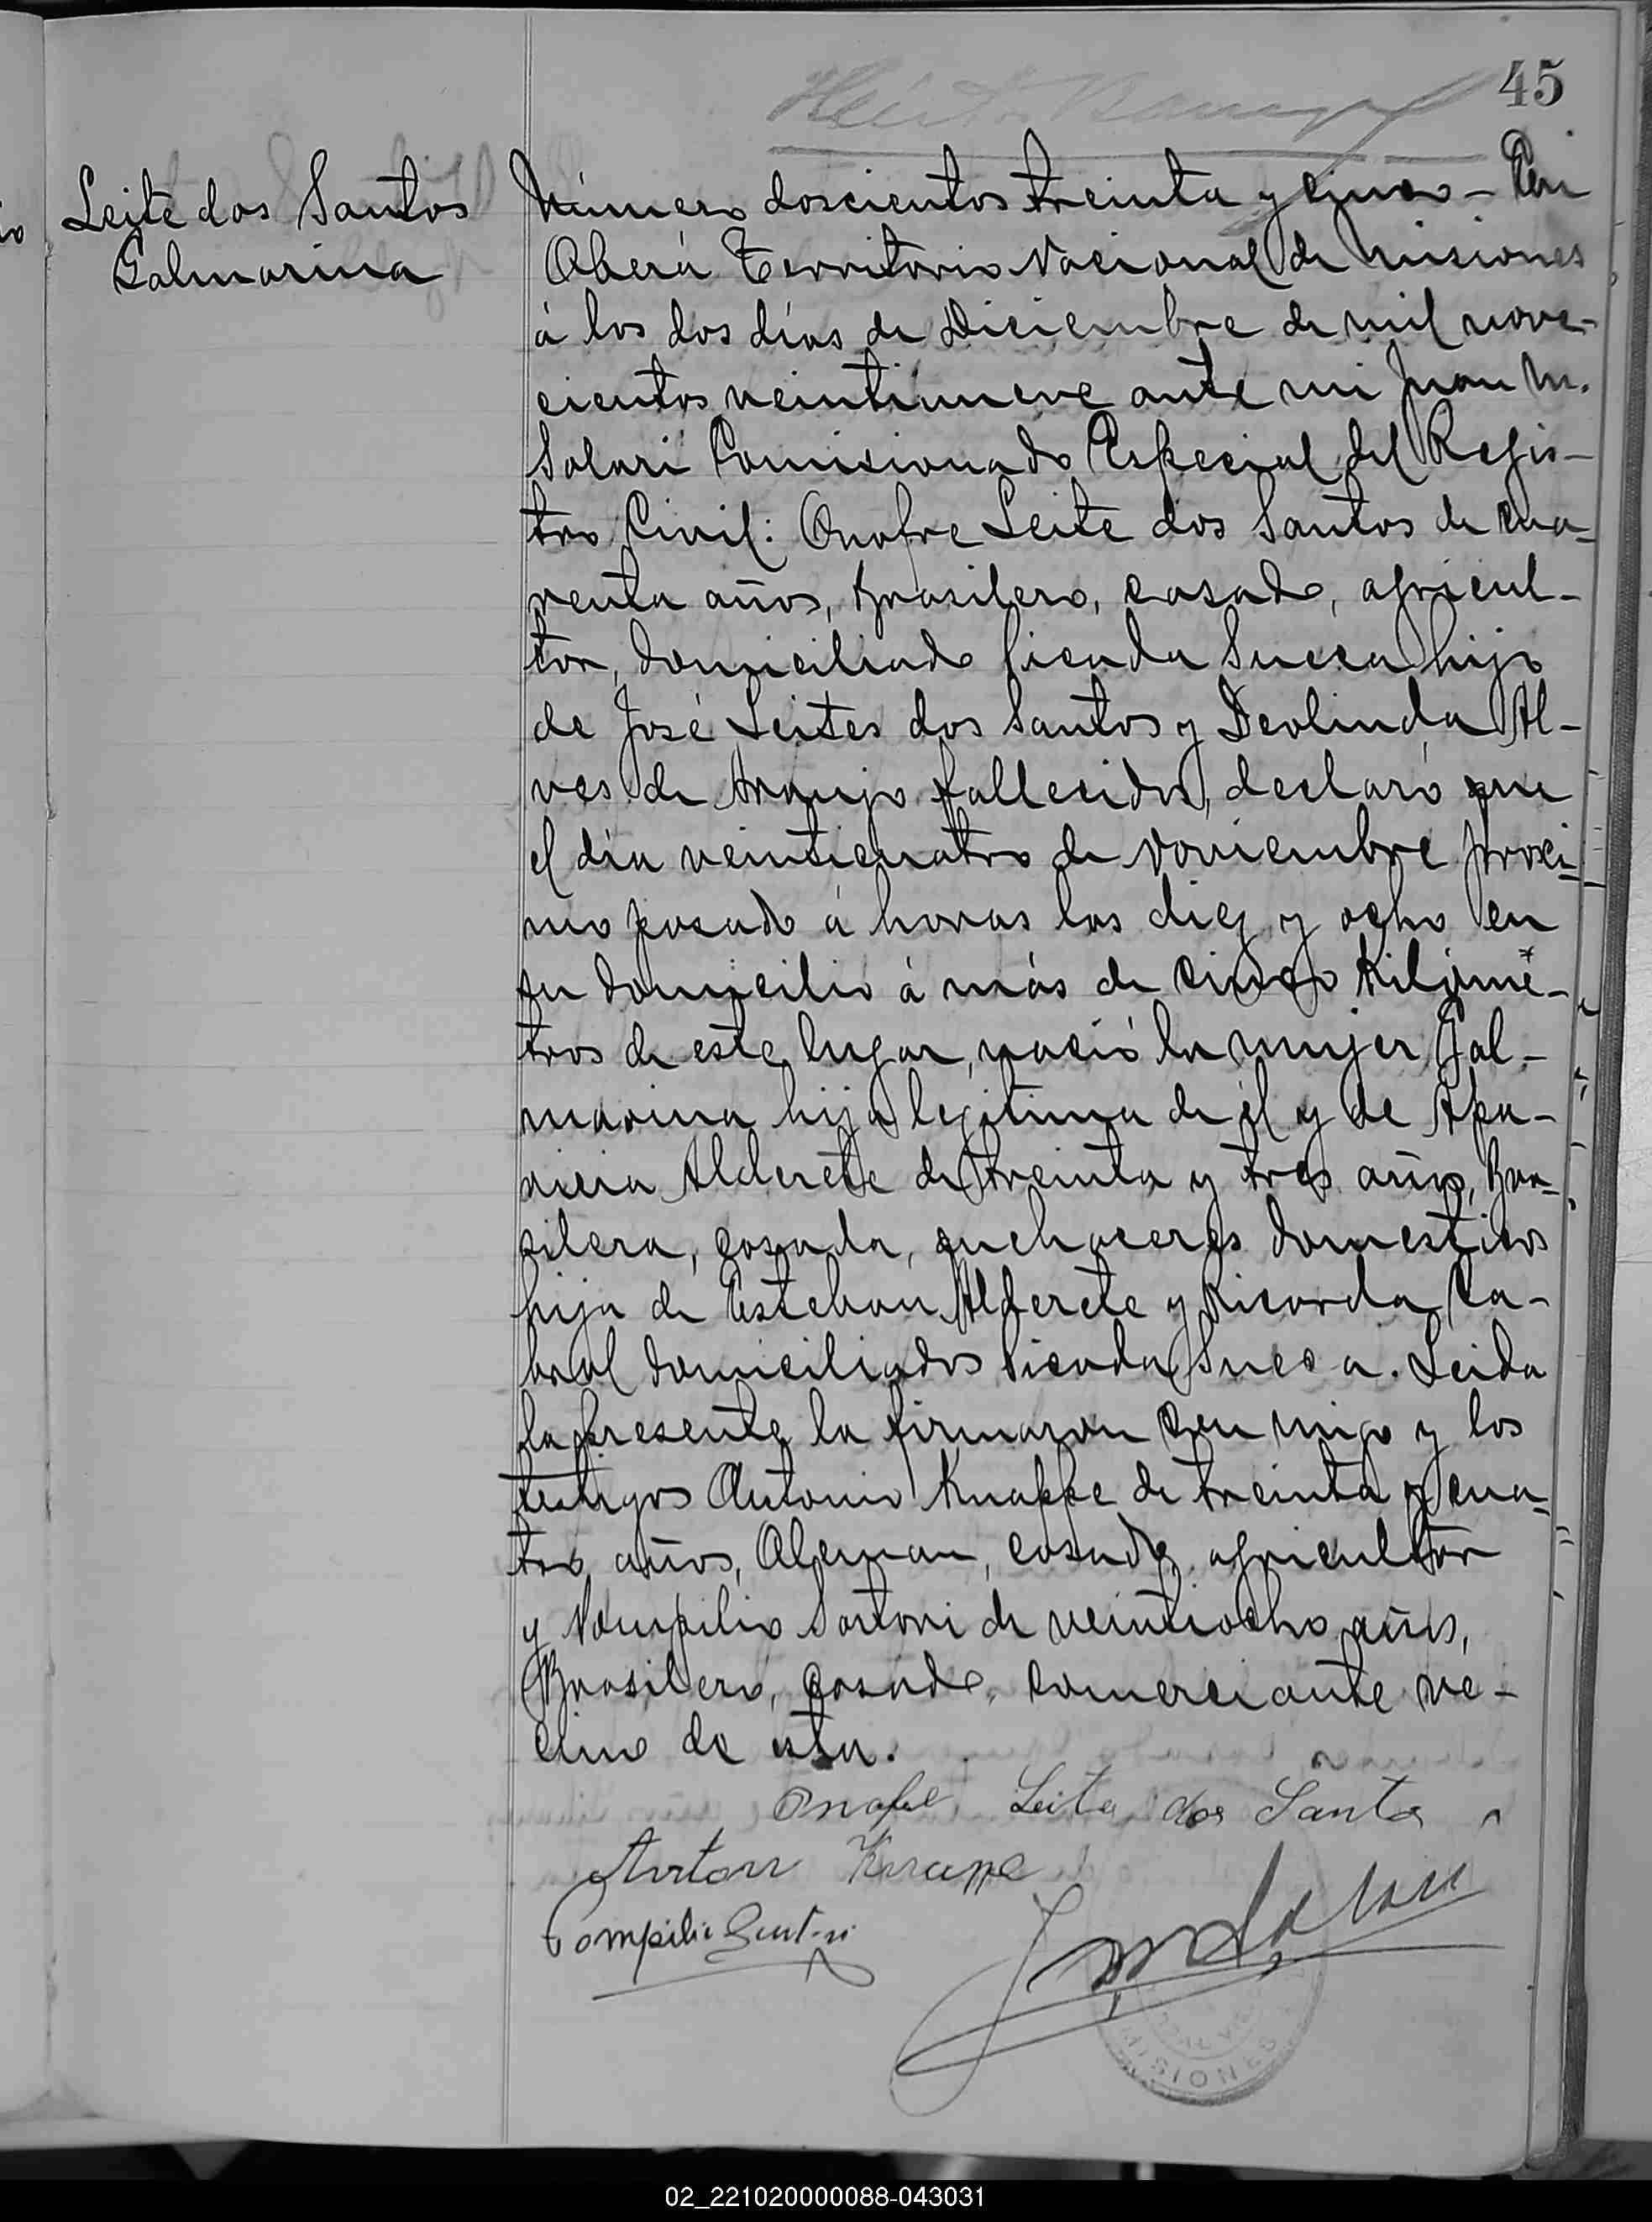 45
Leite dos Santos
Galmarina
Número doscientos treinta y cinco - En
Oberá Territorio Nacional de Misiones
á los dos días de Diciembre de mil nove-
cientos veintinueve ante mi Juan M.
Solari Comisionado Especial del Regis-
tro Civil: Onofre Leite dos Santos de cua-
renta años, Brasilero, casado, agricul-
tor, domiciliado Picada Sueca hijo
de José Leites dos Santos y Deolinda Al-
ves de Araujo fallecidos, declaró que
el día veinticuatro de Noviembre proxi-
mo pasado á horas las diez y ocho en
su domicilio á más de cinco Kilóme-
tros de este lugar, nació la mujer Gal-
marina hija legitima de él y de Apa-
ricia Alderete de treinta y tres años, Bra-
silera, casada, quehaceres domesticos
hija de Esteban Alderete y Ricarda Ca-
bral domiciliados Picada Sueca. Leida
la presente la firmaron con migo y los
testigos Antonio Knappe de treinta y cua-
tro años, Aleman, casado, agricultor
y Pompilio Sartori de veintiocho años,
Brasilero, casado, comerciante ve-
cino de esta.
Onofre Leite dos Santos
Anton Knappe
Pompilio Sartori
MISIONES
02_221020000088-043031